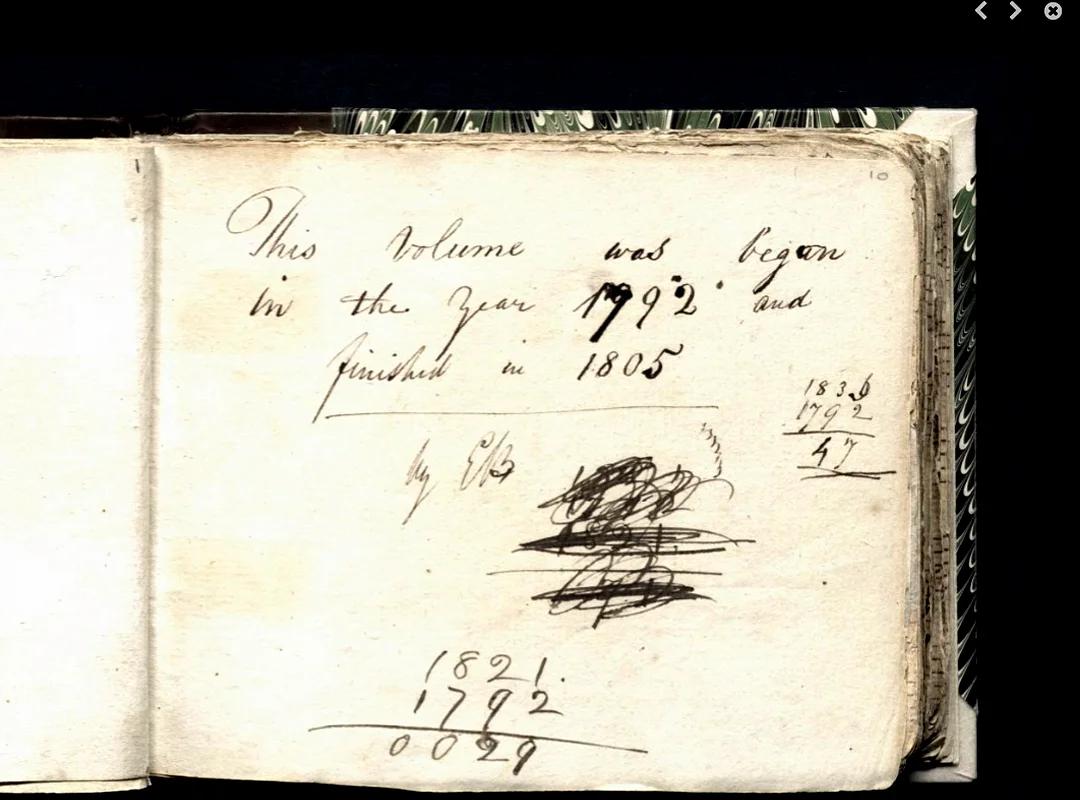 10
This volume was began
in the year 1792 and
finished in 1805
by EB
1792
47
1821.
1792
0029